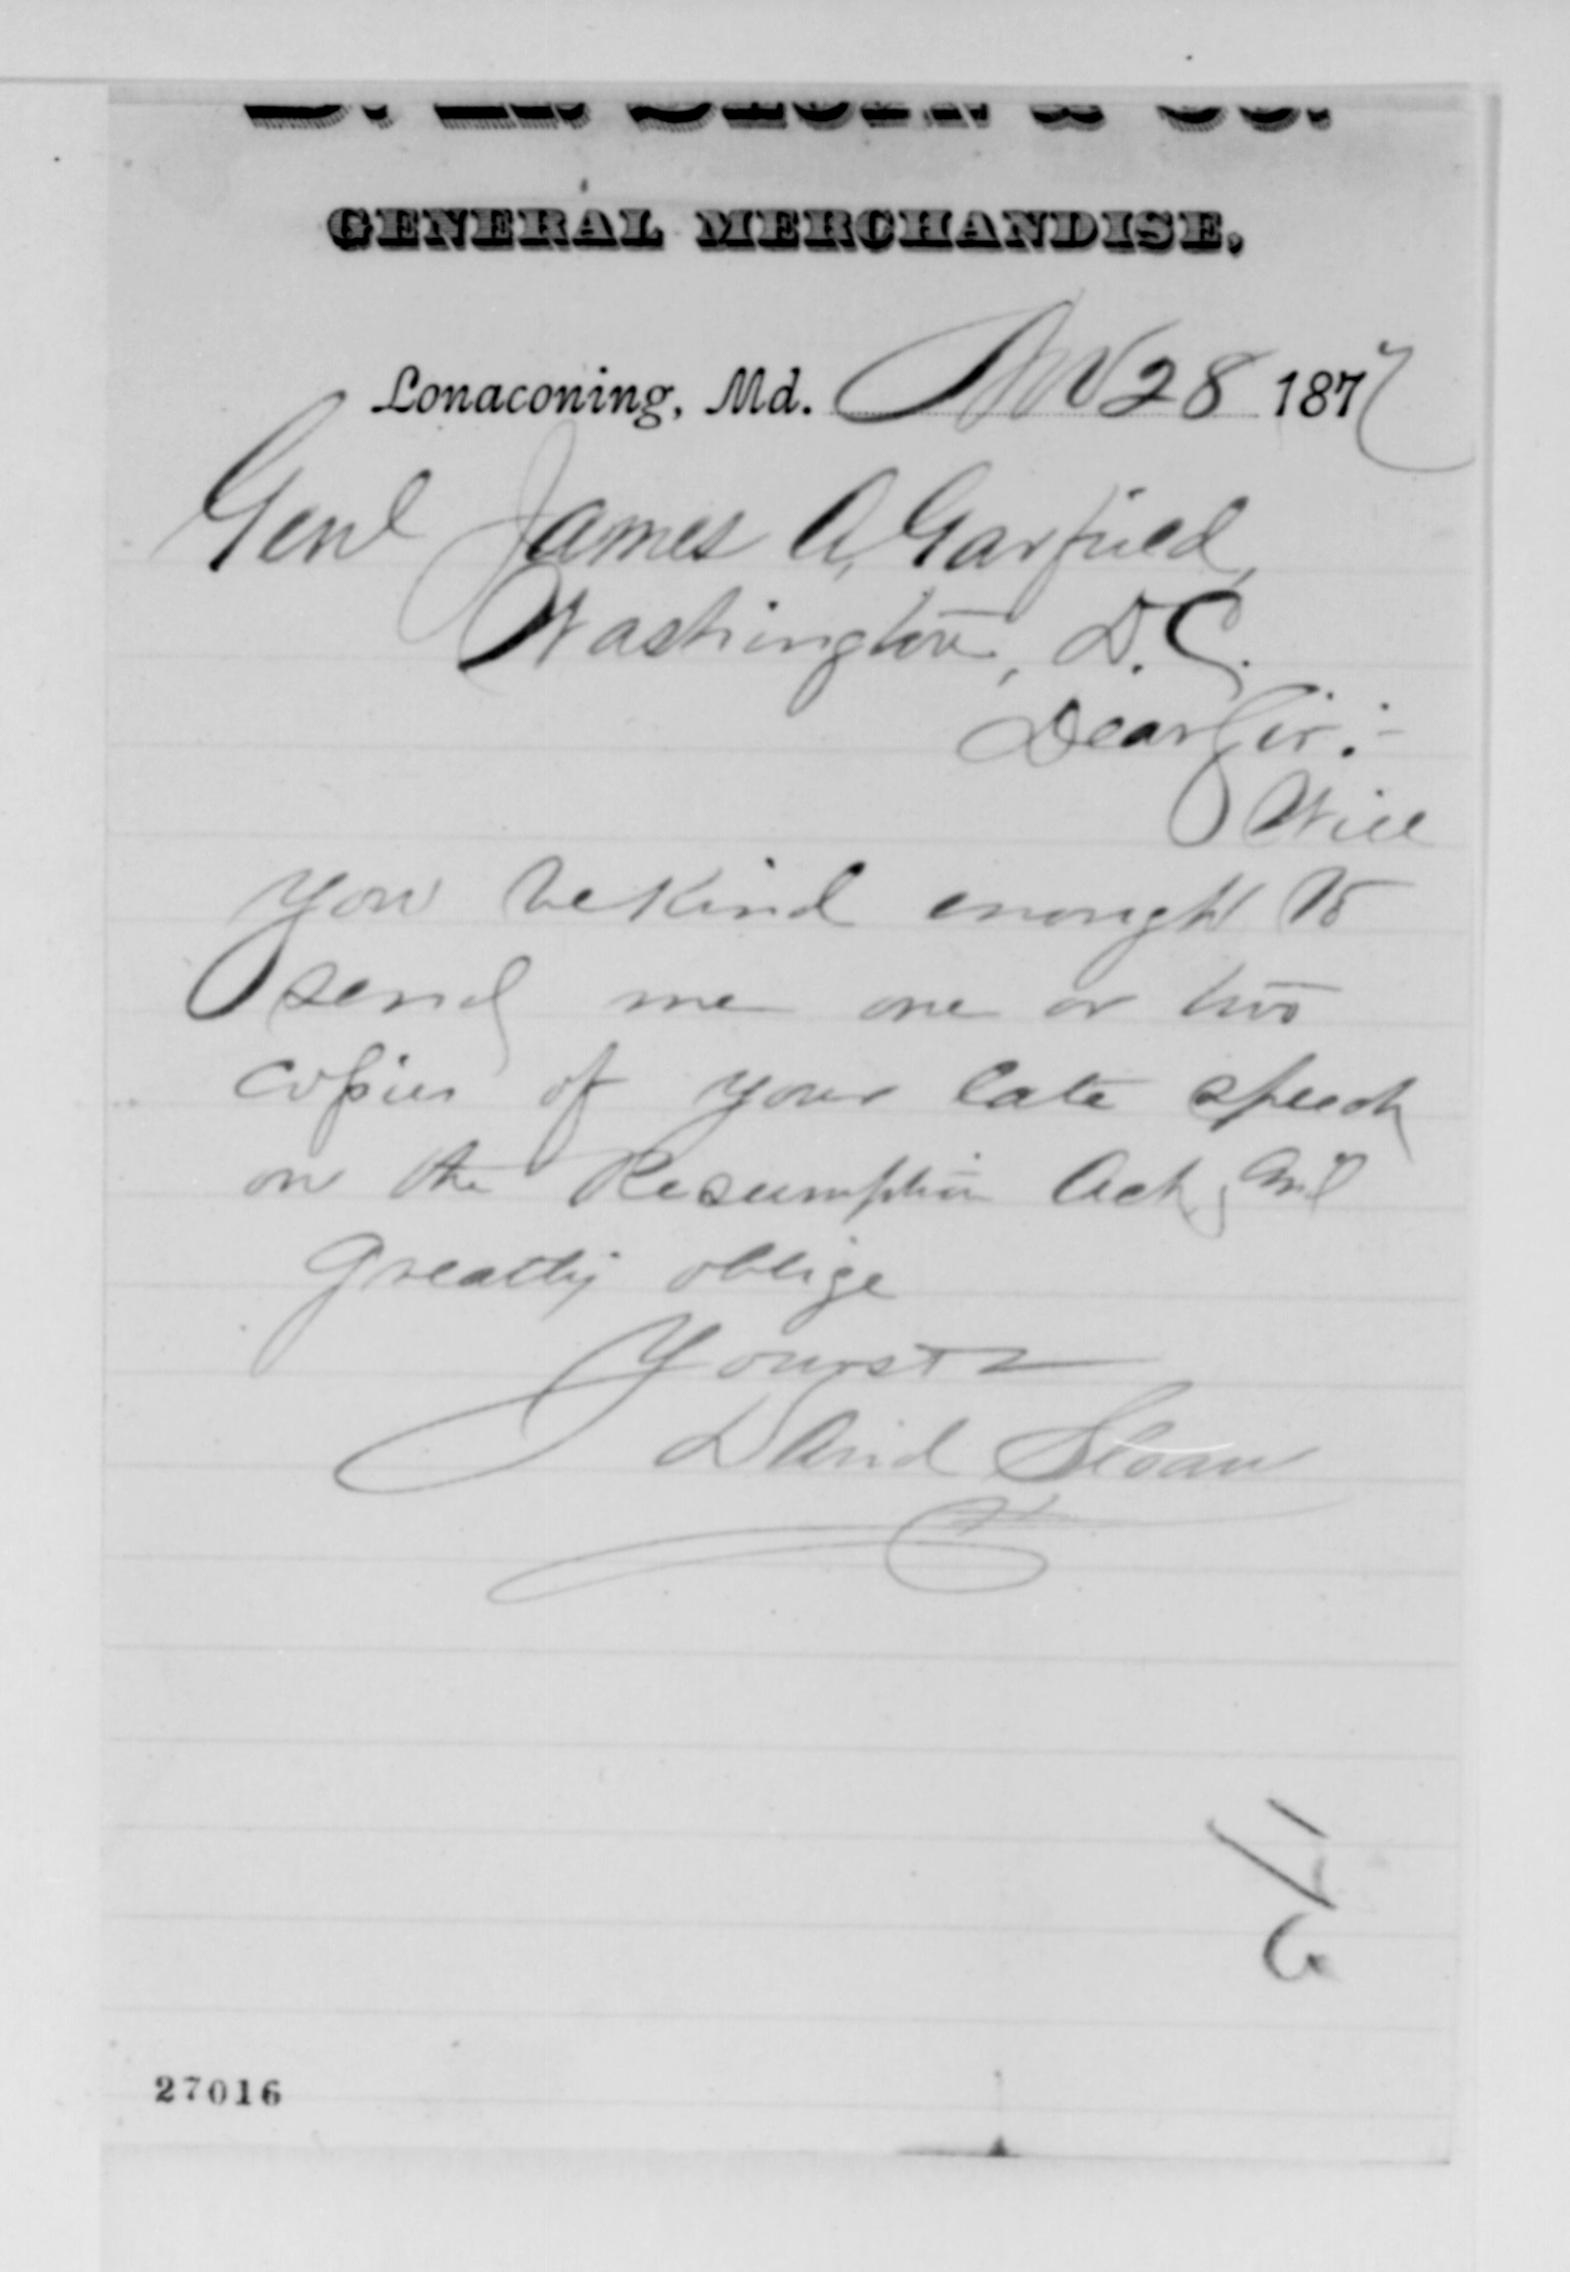 GENERAL MERCHANDISE,
Lonaconing, Md. Nov 28 1877
Genl James A. Garfield,
Washington, D.C.
Dear Sir:-
Will
you be kind enough to
send me one or two
copies of your late speech
on the Resumption Act, and
greatly oblige
Yours
David Sloan
27016